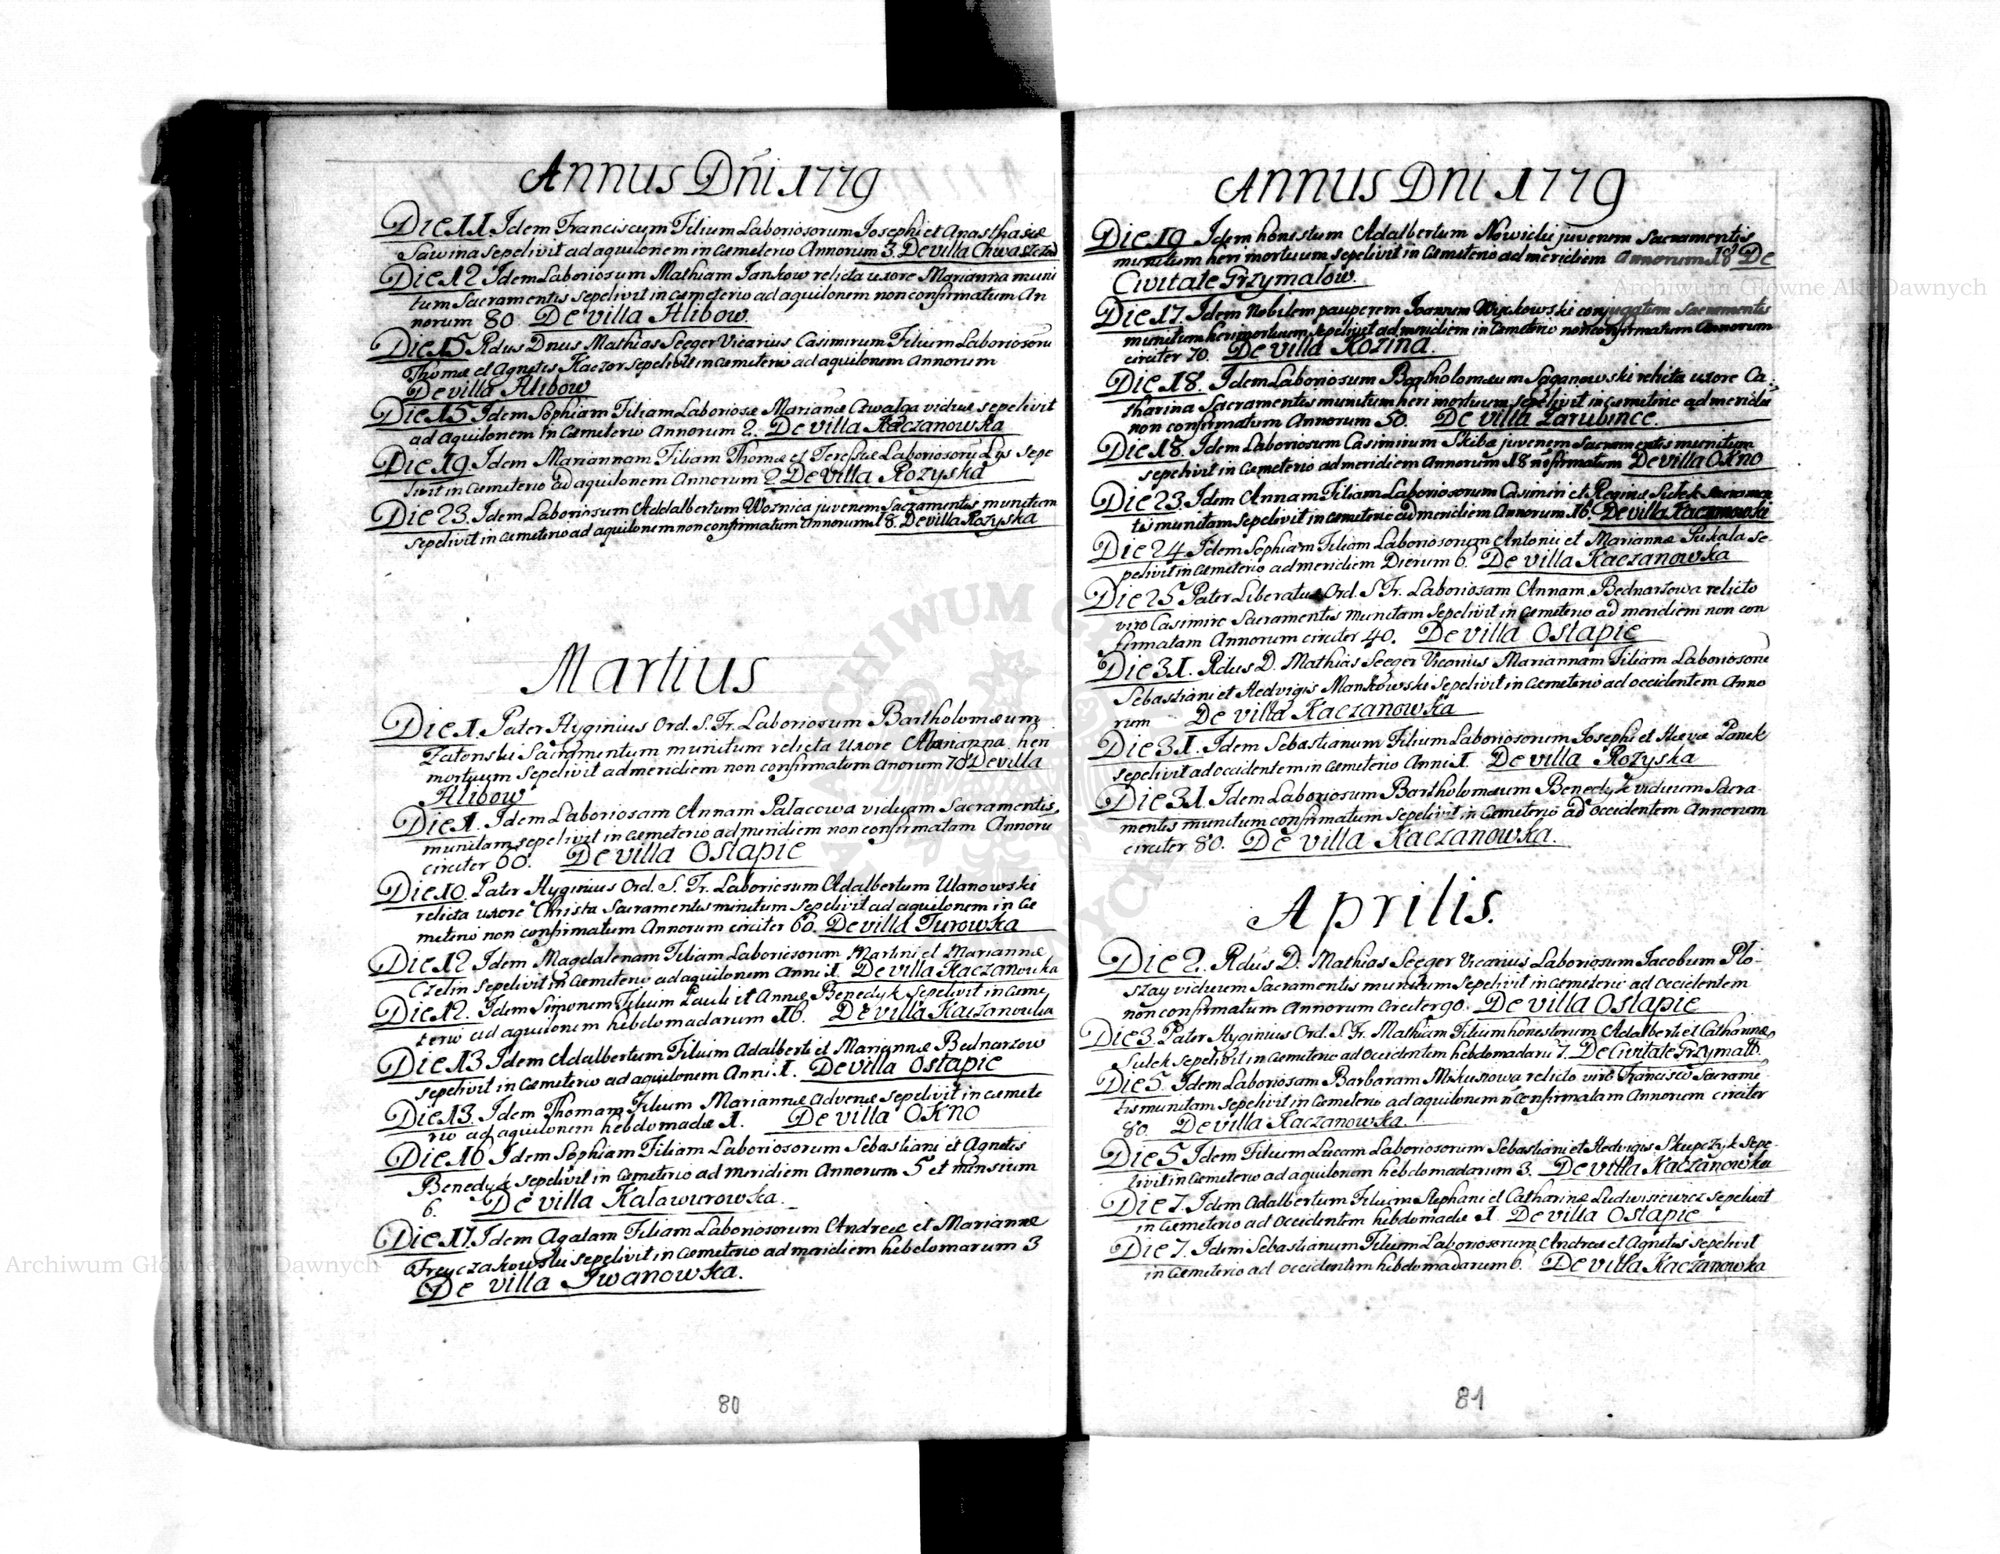 Annus Dñi 1779
Die 11. Idem Franciscum Filium Laboriosorum Iosephi et Anasthasiæ
Sawina sepelivit ad aquilonem in Cæmeterio Annorum 3. De villa
Die 12 Idem Laboriosum Mathiam Jankow relicta uxore Marianna muni
tum Sacramentis sepelivit in cæmeterio ad aquilonem non confirmatum An
norum 80 De villa Hlibow.
Die 15 Rdus Dnus Mathias Seeger Vicarius Casimirum Filium Laboriosorũ
Thomæ et Agnetis Kaczor sepelivit in Cæmeterio ad aquilonem Annorum
De villa Hlibow
Die 15. Idem Sophiam Filiam Laboriosæ Marianæ Czwalga viduæ sepelivit
ad aquilonem in Cæmeterio Annorum 2. De villa Kaczanowka
Die 19 Idem Mariannam Filiam Thomæ et Teresiæ Laboriosorũ Lys sepe
livit in Cæmeterio ad aquilonem Annorum 2 De villa Rozyska
Die 23. Idem Laboriosum Addalbertum Woznica juvenem Sacramentis munitum
sepelivit in cæmeterio ad aquilonem non confirmatum Annorum 18. De villa Rozyska
Martius
Die 1. Pater Hyginius Ord. S. Fr. Laboriosum Bartholomæum
Zatonski Sacramentum munitum relicta uxore Marianna heri
mortuum sepelivit ad meridiem non confirmatum Anorum 70 De villa
Hlibow
Die 1. Idem Laboriosam Annam Palacowa viduam Sacramentis
munitam sepelivit in cæmeterio ad meridiem non confirmatam Annorũ
circiter 60. De villa Ostapie
Die 10. Pater Hyginius Ord. S. Fr. Laboriosum Adalbertum Ulanowski
relicta uxore Christa Sacramentis munitum sepelivit ad aquilonem in Cæ
meterio non confirmatum Annorum circiter 60. De villa Turowka
Die 12 Idem Magdalenam Filiam Laboriosorum Martini et Mariannæ
Czelin sepelivit in Cæmeterio ad aquilonem Anni 1. De villa Kaczanowka
Die 12. Idem Simonem Filium Pauli et Annæ Benedyk sepelivit in Cæme
terio ad aquilonem hebdomadarum 16. De villa Kaczanowka
Die 13 Idem Adalbertum Filium Adalberti et Mariannæ Bednarzow
sepelivit in Cæmeterio ad aquilonem Anni 1. De villa Ostapie
Die 13. Idem Thomam Filium Mariannæ advenæ sepelivit in cæmete
rio ad aquilonem hebdomadæ 1. De villa OKNO
Die 16 Idem Sophiam Filiam Laboriosorum Sebastiani et Agnetis
Benedyk sepelivit in Cæmeterio ad meridiem Annorum 5 et mensium
6. De villa Kalawurowka.
Die 17. Idem Agatam Filiam Laboriosorum Andreæ et Mariannæ
Freyczakowski sepelivit in cæmeterio ad meridiem hebdomarum 3
De villa Iwanowka.
80
Annus Dni 1779
Die 19 Idem honestum Adalbertum Nowicki juvenem Sacramentis
munitum heri mortuum sepelivit in Cæmeterio ad meridiem Annorum 18 De
Civitate Grzymalow.
Die 17. Idem Nobilem pauperem Ioannem Wyckowski conjugatum Sacramentis
munitum heri mortuum sepelivit ad meridiem in Cæmeterio non confirmatum Annorum
circiter 70. De villa Kozina.
Die 18. Idem Laboriosum Bartholomæum Saganowski relicta uxore Ca-
tharina Sacramentis munitum heri mortuum sepelivit in cæmeterio ad meridiẽ
non confirmatum Annorum 50. De villa Zarubince.
Die 18. Idem Laboriosum Casimirum Skiba juvenem Sacramentis munitum
sepelivit in Cæmeterio ad meridiem Annorum 18 nõ firmatum De villa OKno
Die 23. Idem Annam Filiam Laboriosorum Casimiri et Reginæ Sulek Sacramen
tis munitam sepelivit in cæmeterio ad meridiem Annorum 16. De villa Kaczanowka
Die 24 Idem Sophiam Filiam Laboriosorum Antonii et Mariannæ Pukala se-
pelivit in Cæmeterio ad meridiem Dierum 6. De villa Kaczanowka
Die 25 Pater Liberatus Ord. S Fr. Laboriosam Annam Bednarzowa relicto
viro Casimiro Sacramentis munitam sepelivit in Cæmeterio ad meridiem non con
firmatam Annorum circiter 40. De villa Ostapie
Die 31. Rdus D. Mathias Seeger Vicarius Mariannam Filiam Laboriosorũ
Sebastiani et Hedvigis Mankowski sepelivit in Cæmeterio ad occidentem Anno
rum De villa Kaczanowka
Die 31. Idem Sebastianum Filium Laboriosorum Iosephi et Hævæ Panek
sepelivit ad occidentem in cæmeterio Anni 1. De villa Rozyska
Die 31. Idem Laboriosum Bartholomæum Benedyk viduum Sacra
mentis munitum confirmatum sepelivit in Cæmeterio ad Occidentem Annorum
circiter 80. De villa Kaczanowka.
Aprilis.
Die 2. Rdus D. Mathias Seeger Vicarius Laboriosum Jacobum Plo-
szay viduum Sacramentis munitum sepelivit in cæmeterio ad occidentem
non confirmatum Annorum circiter 90. De villa Ostapie
Die 3. Pater Hyginius Ord. S. Fr. Mathiam Filium honestorum Adalberti et Catharinæ
Sulek sepelivit in Cæmeterio ad Occidentem hebdomadarũ 7. De Civitate Grzymalo.
Die 5. Idem Laboriosam Barbaram Mikusiowa relicto viro Francisco Sacramẽ
tis munitam sepelivit in Cæmeterio ad aquilonem nõ confirmatam Annorum circiter
80. De villa Kaczanowka.
Die 5 Idem Filium Lucam Laboriosorum Sebastiani et Hedvigis Skupczyk sepe-
livit in Cæmeterio ad aquilonem hebdomadarum 3. De villa Kaczanowka
Die 7. Idem Adalbertum Filium Stephani et Catharinæ Ludwisiewicz sepelivit
in Cæmeterio ad occidentem hebdomadæ 1. De villa Ostapie
Die 7. Idem Sebastianum Filium Laboriosorum Andreæ et Agnetis sepelivit
in Cæmeterio ad occidentem hebdomadarum 6. De villa Kaczanowka
81
Archiwum Główne Akt Dawnych
Archiwum Główne Akt Dawnych